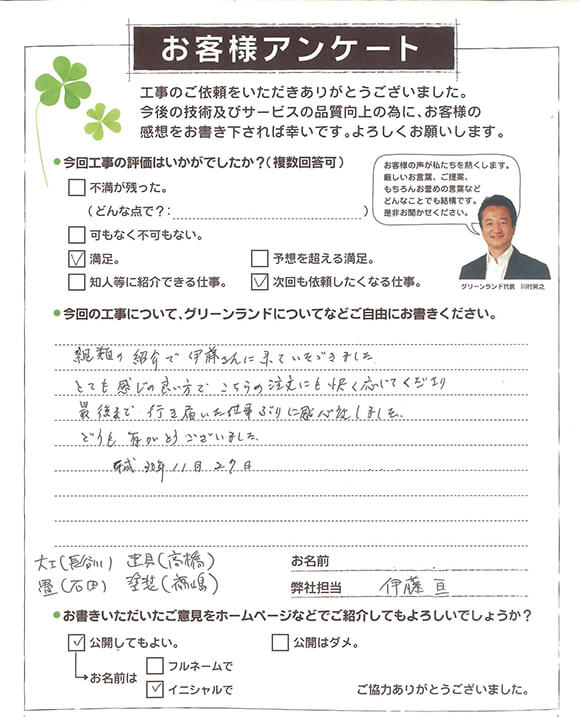 お客様アンケート
工事のご依頼をいただきありがとうございました。
今後の技術及びサービスの品質向上の為に、お客様の
感想をお書き下されば幸いです。よろしくお願いします。
●今回工事の評価はいかがでしたか?(複数回答可)
不満が残った。
(どんな点で?: )
可もなく不可もない。
満足。
予想を超える満足。
知人等に紹介できる仕事。
次回も依頼したくなる仕事。
お客様の声が私たちを熱くします。
厳しいお言葉、ご提案、
もちろんお誉めの言葉など
どんなことでも結構です。
是非お聞かせください。
グリーンランド代表 川村英之
●今回の工事について、グリーンランドについてなどご自由にお書きください。
親類の紹介で伊藤さんに来ていただきました
とても感じの良い方でこちらの注文にも快く応じてくださり
最後まで行き届いた仕事ぶりに感心致しました。
どうもありがとうございました。
平成30年11月27日
大工(長谷川) 建具(高橋)
畳(石田) 塗装(福嶋)
お名前
弊社担当 伊藤 亘
●お書きいただいたご意見をホームページなどでご紹介してもよろしいでしょうか?
公開してもよい。
公開はダメ。
お名前は
フルネームで
イニシャルで
ご協力ありがとうございました。